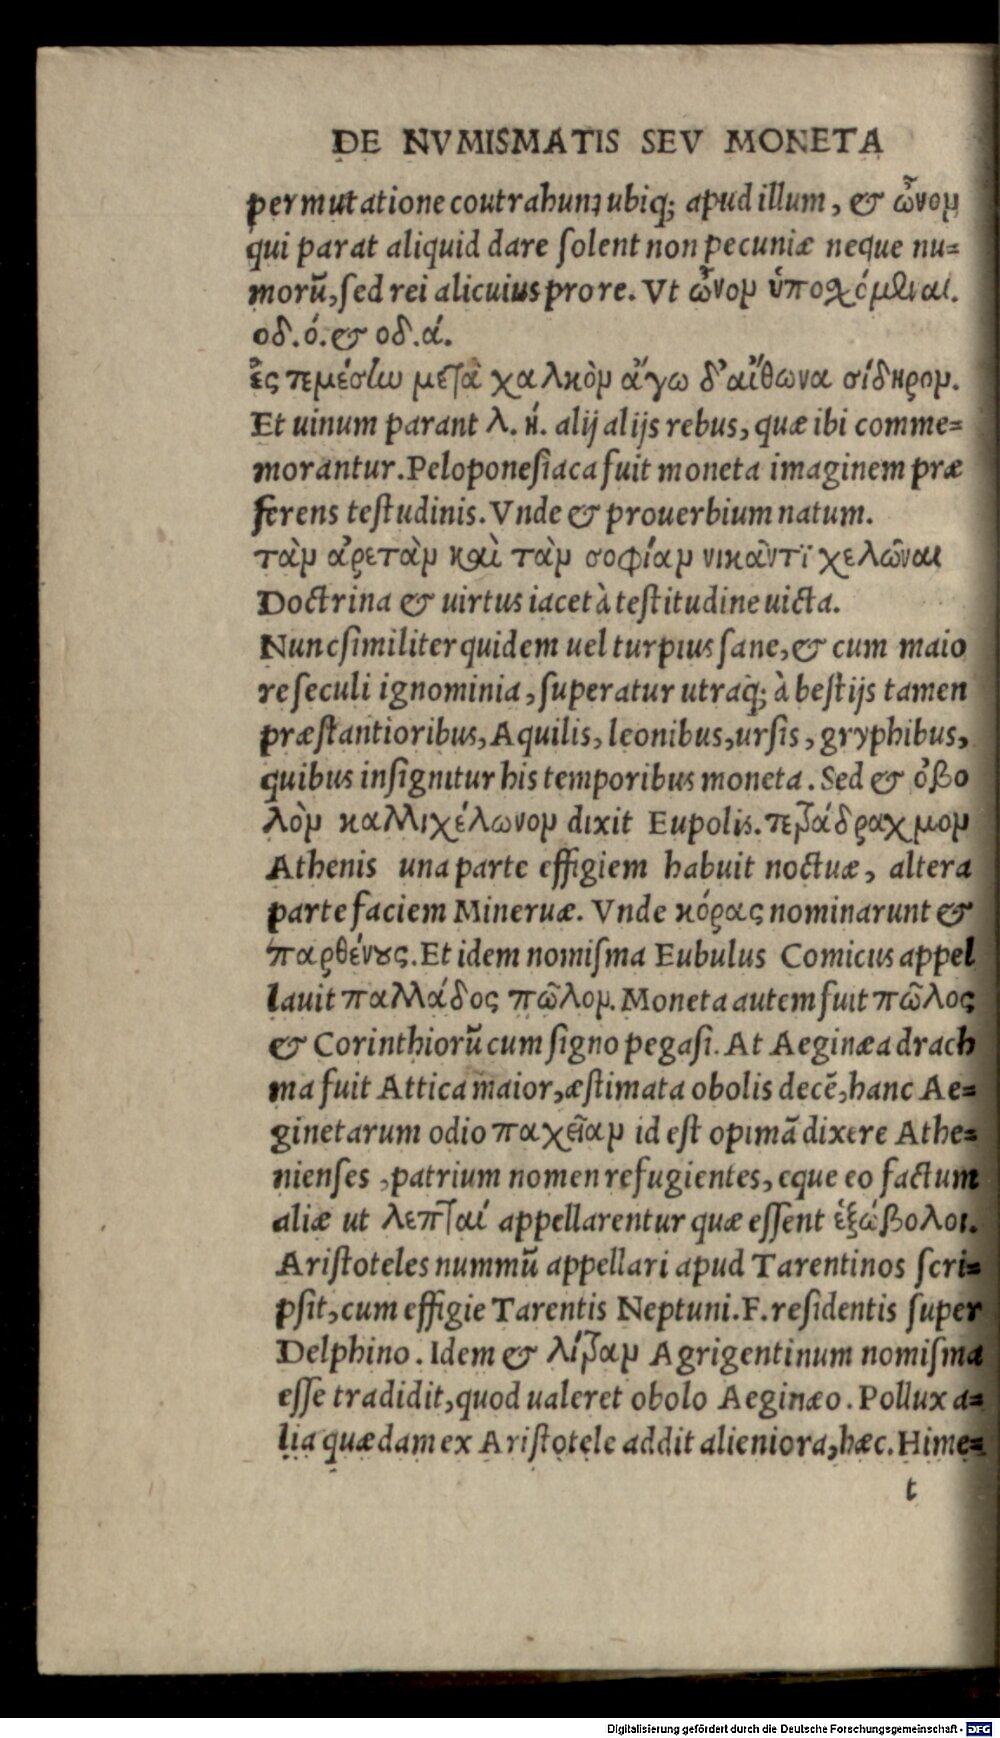 DE NVMISMATIS SEV MONETA
permutatione coutrahunꝫ ubiq; apud illum, & ὦνομ
qui parat aliquid dare ſolent non pecuniæ neque nu=
morũ, ſed rei alicuius pro re. Vt ὦνομ
οδ.ό.& οδ.ά.
ἐς πεμέσἰω μεῖὰ χαλκὸμ ἄγω δ' αἴθωνα σίδηρομ.
Et uinum parant λ. ή. alij alijs rebus, quæ ibi comme=
morantur. Peloponeſiaca fuit moneta imaginem præ
ferens teſtudinis. Vnde & prouerbium natum.
τὰμ ἀρετὰμ καὶ τὰμ σοφίαμ νικᾶντϊ χελῶναι
Doctrina & uirtus iacet à teſtitudine uicta.
Nunc ſimiliter quidem uel turpius ſane, & cum maio
re ſeculi ignominia, ſuperatur utraq; à beſtijs tamen
præſtantioribus, Aquilis, leonibus, urſis, gryphibus,
quibus inſignitur his temporibus moneta. Sed & ὀβο
λὸμ καλλιχέλωνομ dixit Eupolis. τετράδραχμομ
Athenis una parte effigiem habuit noctuæ, altera
parte faciem Mineruæ. Vnde κόρας nominarunt &
παρθένους. Et idem nomiſma Eubulus Comicus appel
lauit παλλάδος πῶλομ. Moneta autem fuit πῶλος
& Corinthiorũ cum ſigno pegaſi. At Aeginæa drach
ma fuit Attica maior, æſtimata obolis decẽ, hanc Ae=
ginetarum odio παχεῖαμ id eſt opimã dixere Athe=
nienſes, patrium nomen refugientes, eque eo factum
aliæ ut λεπταί appellarentur quæ eſſent ἑξώβολοι.
Ariſtoteles nummũ appellari apud Tarentinos ſcri=
pſit, cum effigie Tarentis Neptuni. F. reſidentis ſuper
Delphino. Idem & λίτραμ Agrigentinum nomiſma
eſſe tradidit, quod ualeret obolo Aeginæo. Pollux a=
lia quædam ex Ariſtotele addit alieniora, hæc. Hime=
t
Digitalisierung gefördert durch die Deutsche Forschungsgemeinschaft - DFG